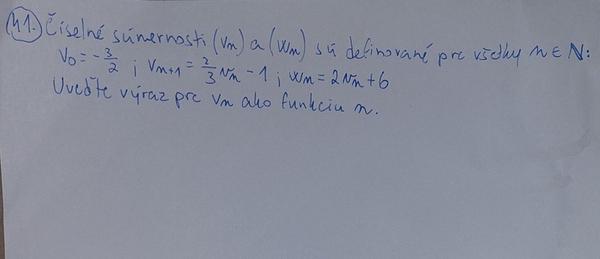 41. Číselné súmernosti (vn) a (wn) sú definované pre všetky n ∈ N:
v0 = -3/2 ; vn+1 = 2/3 vn - 1 ; wn = 2vn + 6
Uveďte výraz pre vn ako funkciu n.